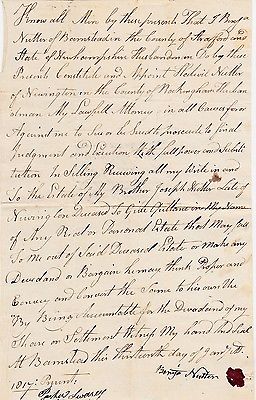 Know all Men by these presents That I Benja
Nutter of Barnstead in the County of Strafford and
State of Newhampshire Husbandman Do by these
Presents Constitute and Appoint Hatevil Nutter
of Newington in the County of Rockingham Husban
dman My Lawfull Attorney in all Causes for or
Against me to Sue or be Sued to prosecute to final
Judgment and Execution With full power and Substi
tution In Selling Receiving all my Write in and
To the Estate of My Brother Joseph Nutter Late of
Newington Deceased To Give Quittance in
of Any Real or Personal Estate that May Cos
To Me out of Said Deceased Estate or Make any
Devedand or Bargain he may think Proper and
Convey and Convert the Same to his own Use
By Being Accountable for the Devedand of my
Share or Settlement Witness My hand and Seal
At Barnstead this thirteenth day of Janry AD
1817
Benja Nutter